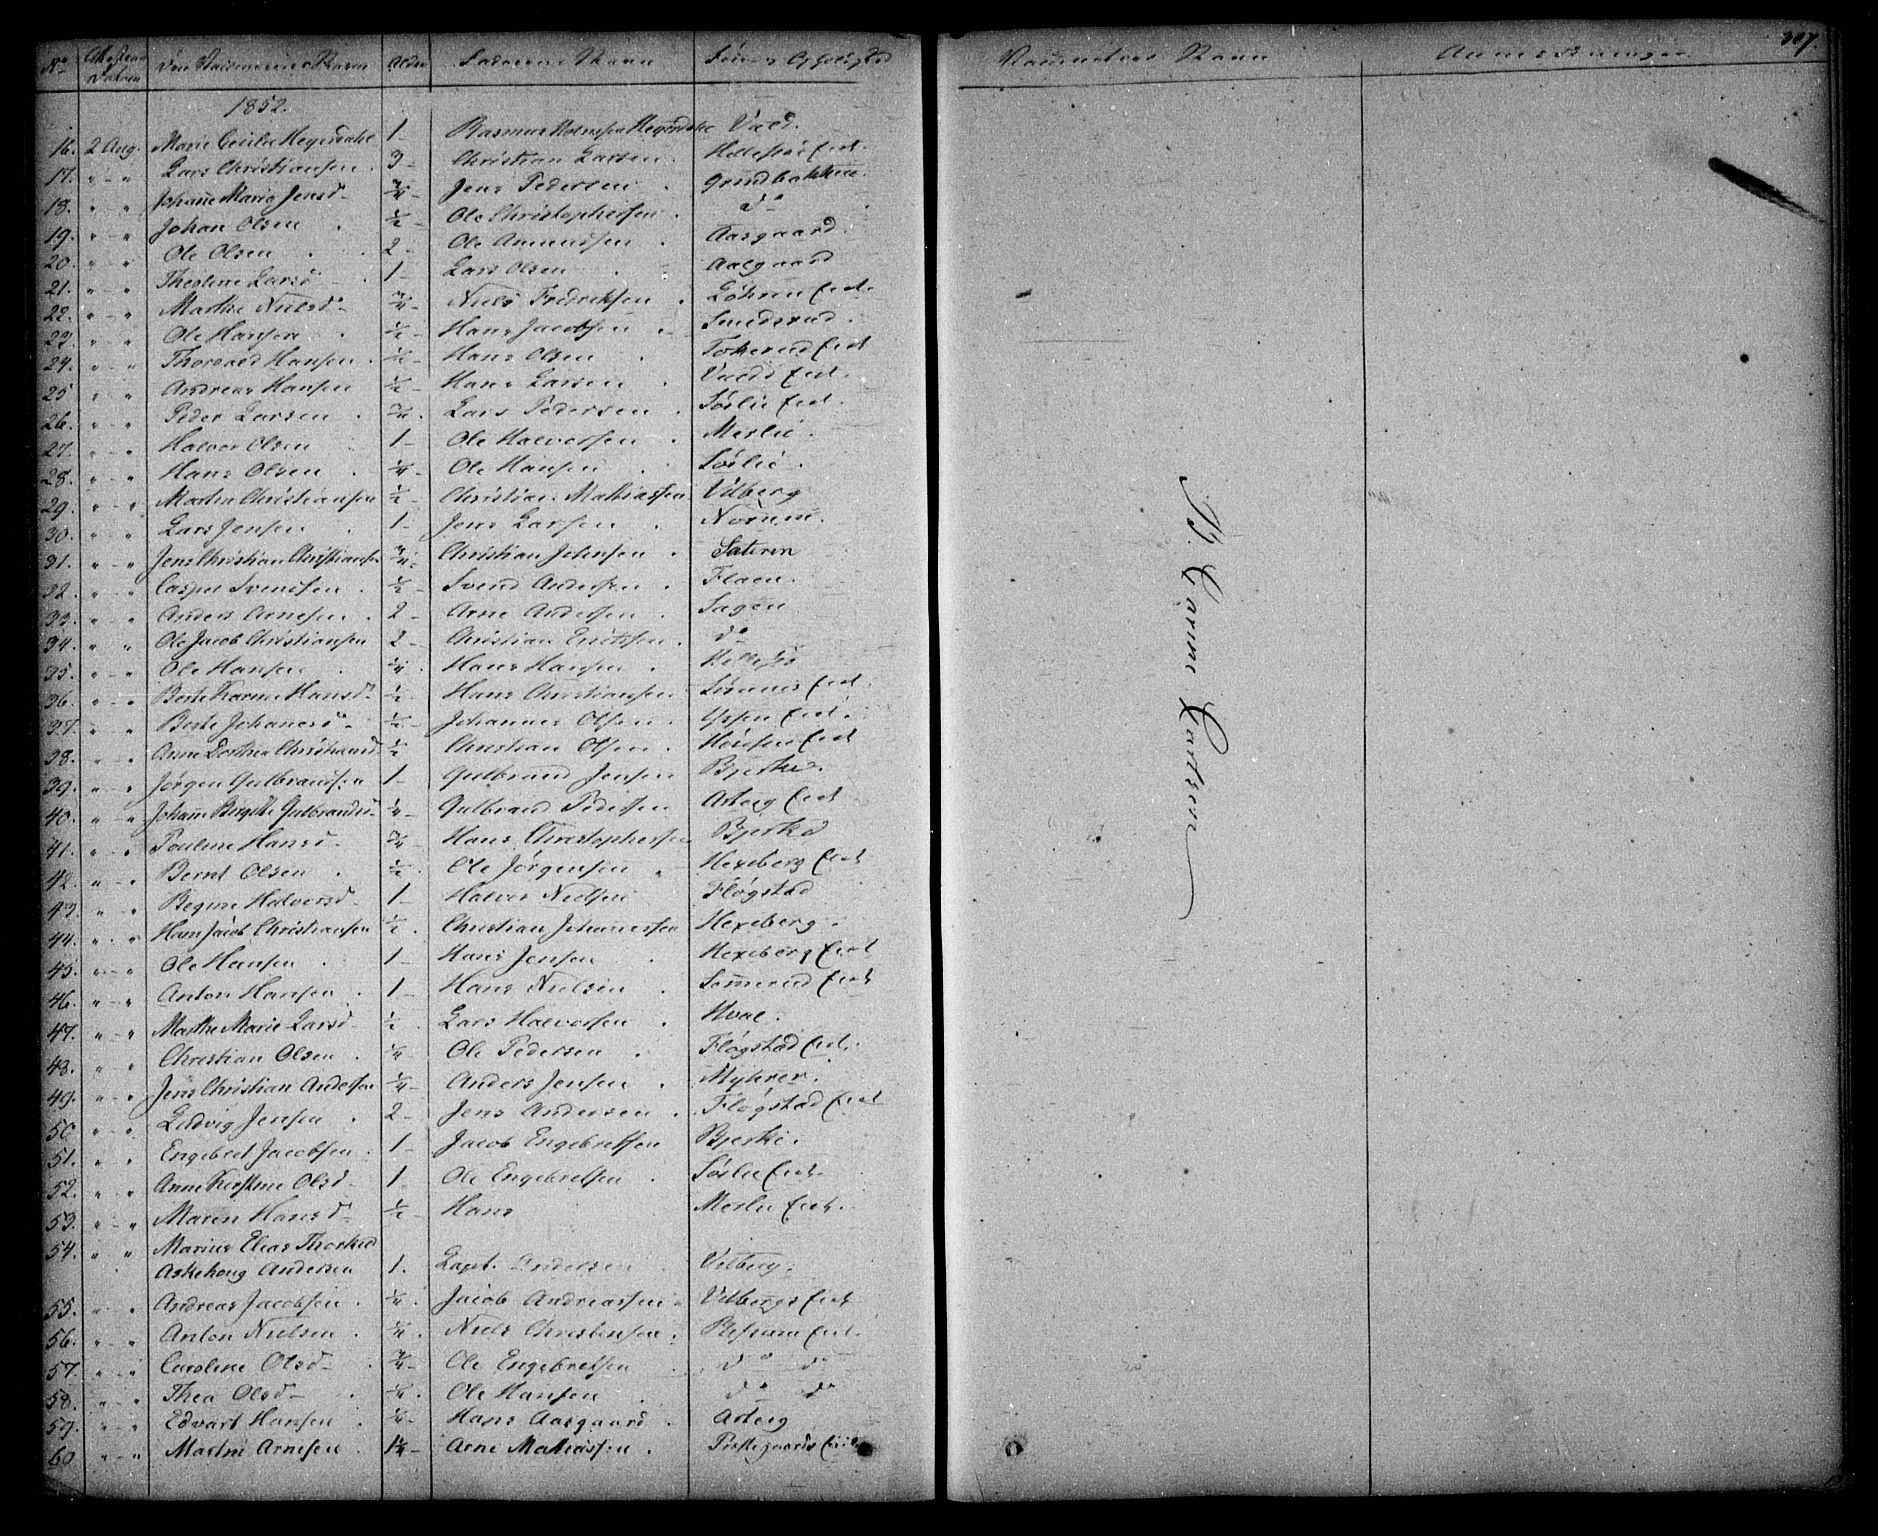 No Attestens Datum Den Vaccineredes Navn Alder Faderens Navn Sammes Opholdssted Vaccinateurs Navn Anmærkninger 307.
1852.
16. 2 Aug. Marie Cecilie 1- Rasmus Vaed.
17. " - " Lars Christiansen . 3- Christian Larsen .
18. " - " Johane Marie Jensd- 3/4- Jens Pedersen . Grindbakken.
19. " - " Johan Olsen . 1/2- Ole Christophersen . do
20. " - " Ole Olsen . 2- Ole Amundsen . Aasgaard.
21. " - " Theoline Larsd- 1- Lars Olsen . Aalgaard
22. " - " Marthe Nielsd- 3/4- Niels Fredriksen . Løkem Eiet.
23. " - " Ole Hansen . 1/2- Hans Jacobsen . Smedsrud.
24. " - " Thorvald Hansen . 1/2- Hans Olsen . Tokerud Eiet
25 " - " Andreas Hansen 1/2- Hans Larsen . Vaeds Eiet.
26. " - " Peder Larsen . 3/4. Lars Pedersen . Sørlie Eiet.
27. " - " Halvor Olsen 1- Ole Halvorsen . Merlie.
28. " - " Hans Olsen . 1/4- Ole Hansen . Sørlie.
29. " - " Martin Christiansen 1/2- Christian Mathiassen Vilberg
30. " - " Lars Jensen . 1- Jens Larsen . Norum.
31. " - " Jens Christian Christianse- 3/4- Christian Johnsen . Sateren
32. " - " Casper Svensen . 1/2- Svend Andersen . Flaen.
33. " - " Anders Arnesen . 2- Arne Andersen . Sagen
34. " " Ole Jacob Christiansen 2- Christian Ericksen . do
35. " - " Ole Hansen . 1/4. Hans Hansen .
36. " - " Berte Karine Hansd- 1/2 Hans Christiansen Eiet.
37. " - " Berte Johanesd- 1/2- Johannes Olsen . Eiet.
38. " . " Anne Dorthea Christiansd 1/2 Christian Olsen . Eiet
39. " - " Jørgen Gulbransen 1- Gulbrand Jensen Bjerke.
40. " - " Johane Birgitte Gulbrandsd- 1/4- Gulbrand Pedersen Asberg Eiet
41. " . " Pauline Hansd- 3/4- Hans Christophersen Bjerke
42. " - " Bernt Olsen . 1/2. Ole Jørgensen . Hexeberg Eiet
43. " - " Regine Halvorsd- 1- Halvor Nielsen Fløgstad
44. " . " Hans Jacob Christiansen 1/2. Christian Johanessen Hexeberg.
45. " - " Ole Hansen . 1- Hans Jensen . Hexeberg Eiet
46. " - " Anton Hansen . 1- Hans Nielsen . Sørnerud Eiet
47. " - " Marthe Marie Larsd- 1/2. Lars Halvorsen . Hval.
48. " . " Christian Olsen . 1/4- Ole Pedersen . Fløgstad Eiet.
49. " . " Jens Christian Andersen 1/4- Anders Jensen . Myhrer.
50 " . " Ludvig Jensen . 2- Jens Andersen . Fløgstad Eiet
51. " . " Engebret Jacobsen . 1- Jacob Engebretsen Bjerke.
52. " . " Anne Kirstine Olsd- 1. Ole Engebretsen . Sørlie Eiet.
53. " - " Maren Hansd- 1/2- Hans Merlie Eiet.
54. " " Marius Elias Thorkid
Askehoug Andersen 1. Capt. Andersen Vilberg.
55. " . " Andreas Jacobsen . 1/4. Jacob Andreassen . Vilbergs Eiet
56. " - " Anton Nielsen . 3/4. Niels Christensen . Eiet.
57. " - " Caroline Olsd- . 3/4- Ole Engebretsen . do do
58. " - " Thea Olsd- . 1/4. Ole Hansen . do do
59. " - " Edvart Hansen . 1/4- Hans Aasgaard . Asberg
60 " - " Martin Arnesen . 1 1/4- Arne Mathiassen . Præstegaards Eiet
B. Carine Larsen